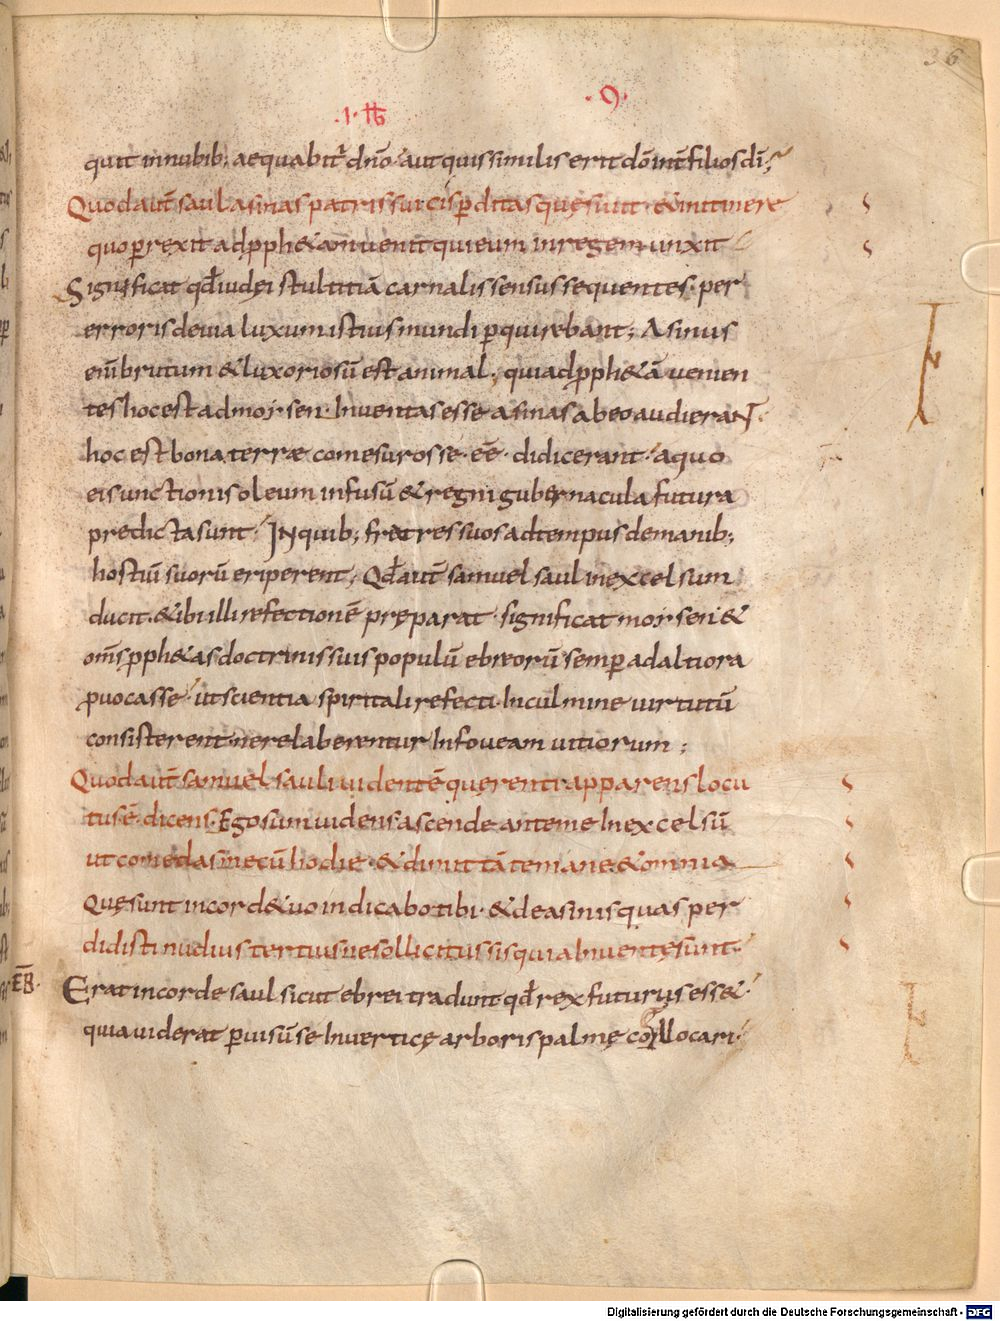 36
·I· lib
·9·
quit in nubib; aequabit᷑ dn̄o· aut quis similis erit dō int̄ filios dī;
Quod aut̄ saul asinas patris sui cis ꝑditas quęsiuit· & in itinere
quo ꝑrexit ad ꝓph&am uenit qui eum in regem unxit
Significat qđ iudęi stultitiā carnalis sensus sequentes· per
erroris deuia luxum istius mundi ꝑquirebant; Asinus
enī brutum & luxoriosū est animal; qui ad ꝓph&ā uenien
tes hoc est ad moisen· Inuentas esse asinas ab eo audierant·
hoc est bona terræ comesuros se· eē· didicerant· a quo
eis unctionis oleum infusū & regni gubernacula futura
predicta sunt· In quib; fratres suos ad tempus de manib;
hostiū suorū eriperent; Qđ aut̄ samuel saul in excelsum
ducit· & ibi illi refectionē pręparat· significat moisen &
om̄s ꝓph&as doctrinis suis populū ebreorū semꝑ ad altiora
ꝓuocasse· ut scientia spiritali refecti· In culmine uirtutū
consisterent· ne relaberentur In foueam uitiorum;
Quod aut̄ samuel sauli uidentē querenti apparens locu
tus· ē· dicens· Ego sum uidens ascende ante me In excelsū
ut comedas mecū hodie· & dimittā te mane· & omnia
quę sunt in cord& uo indicabo tibi· & de asinis quas per
didisti nudius tertius ne sollicitus sis quia Inuentę sunt·
EB̄·
Erat in corde saul sicut ebrei tradunt qđ rex futurus ess&·
quia uiderat ꝑ uisū se In uerticę arboris palmę collocari·
Digitalisierung gefördert durch die Deutsche Forschungsgemeinschaft - DFG